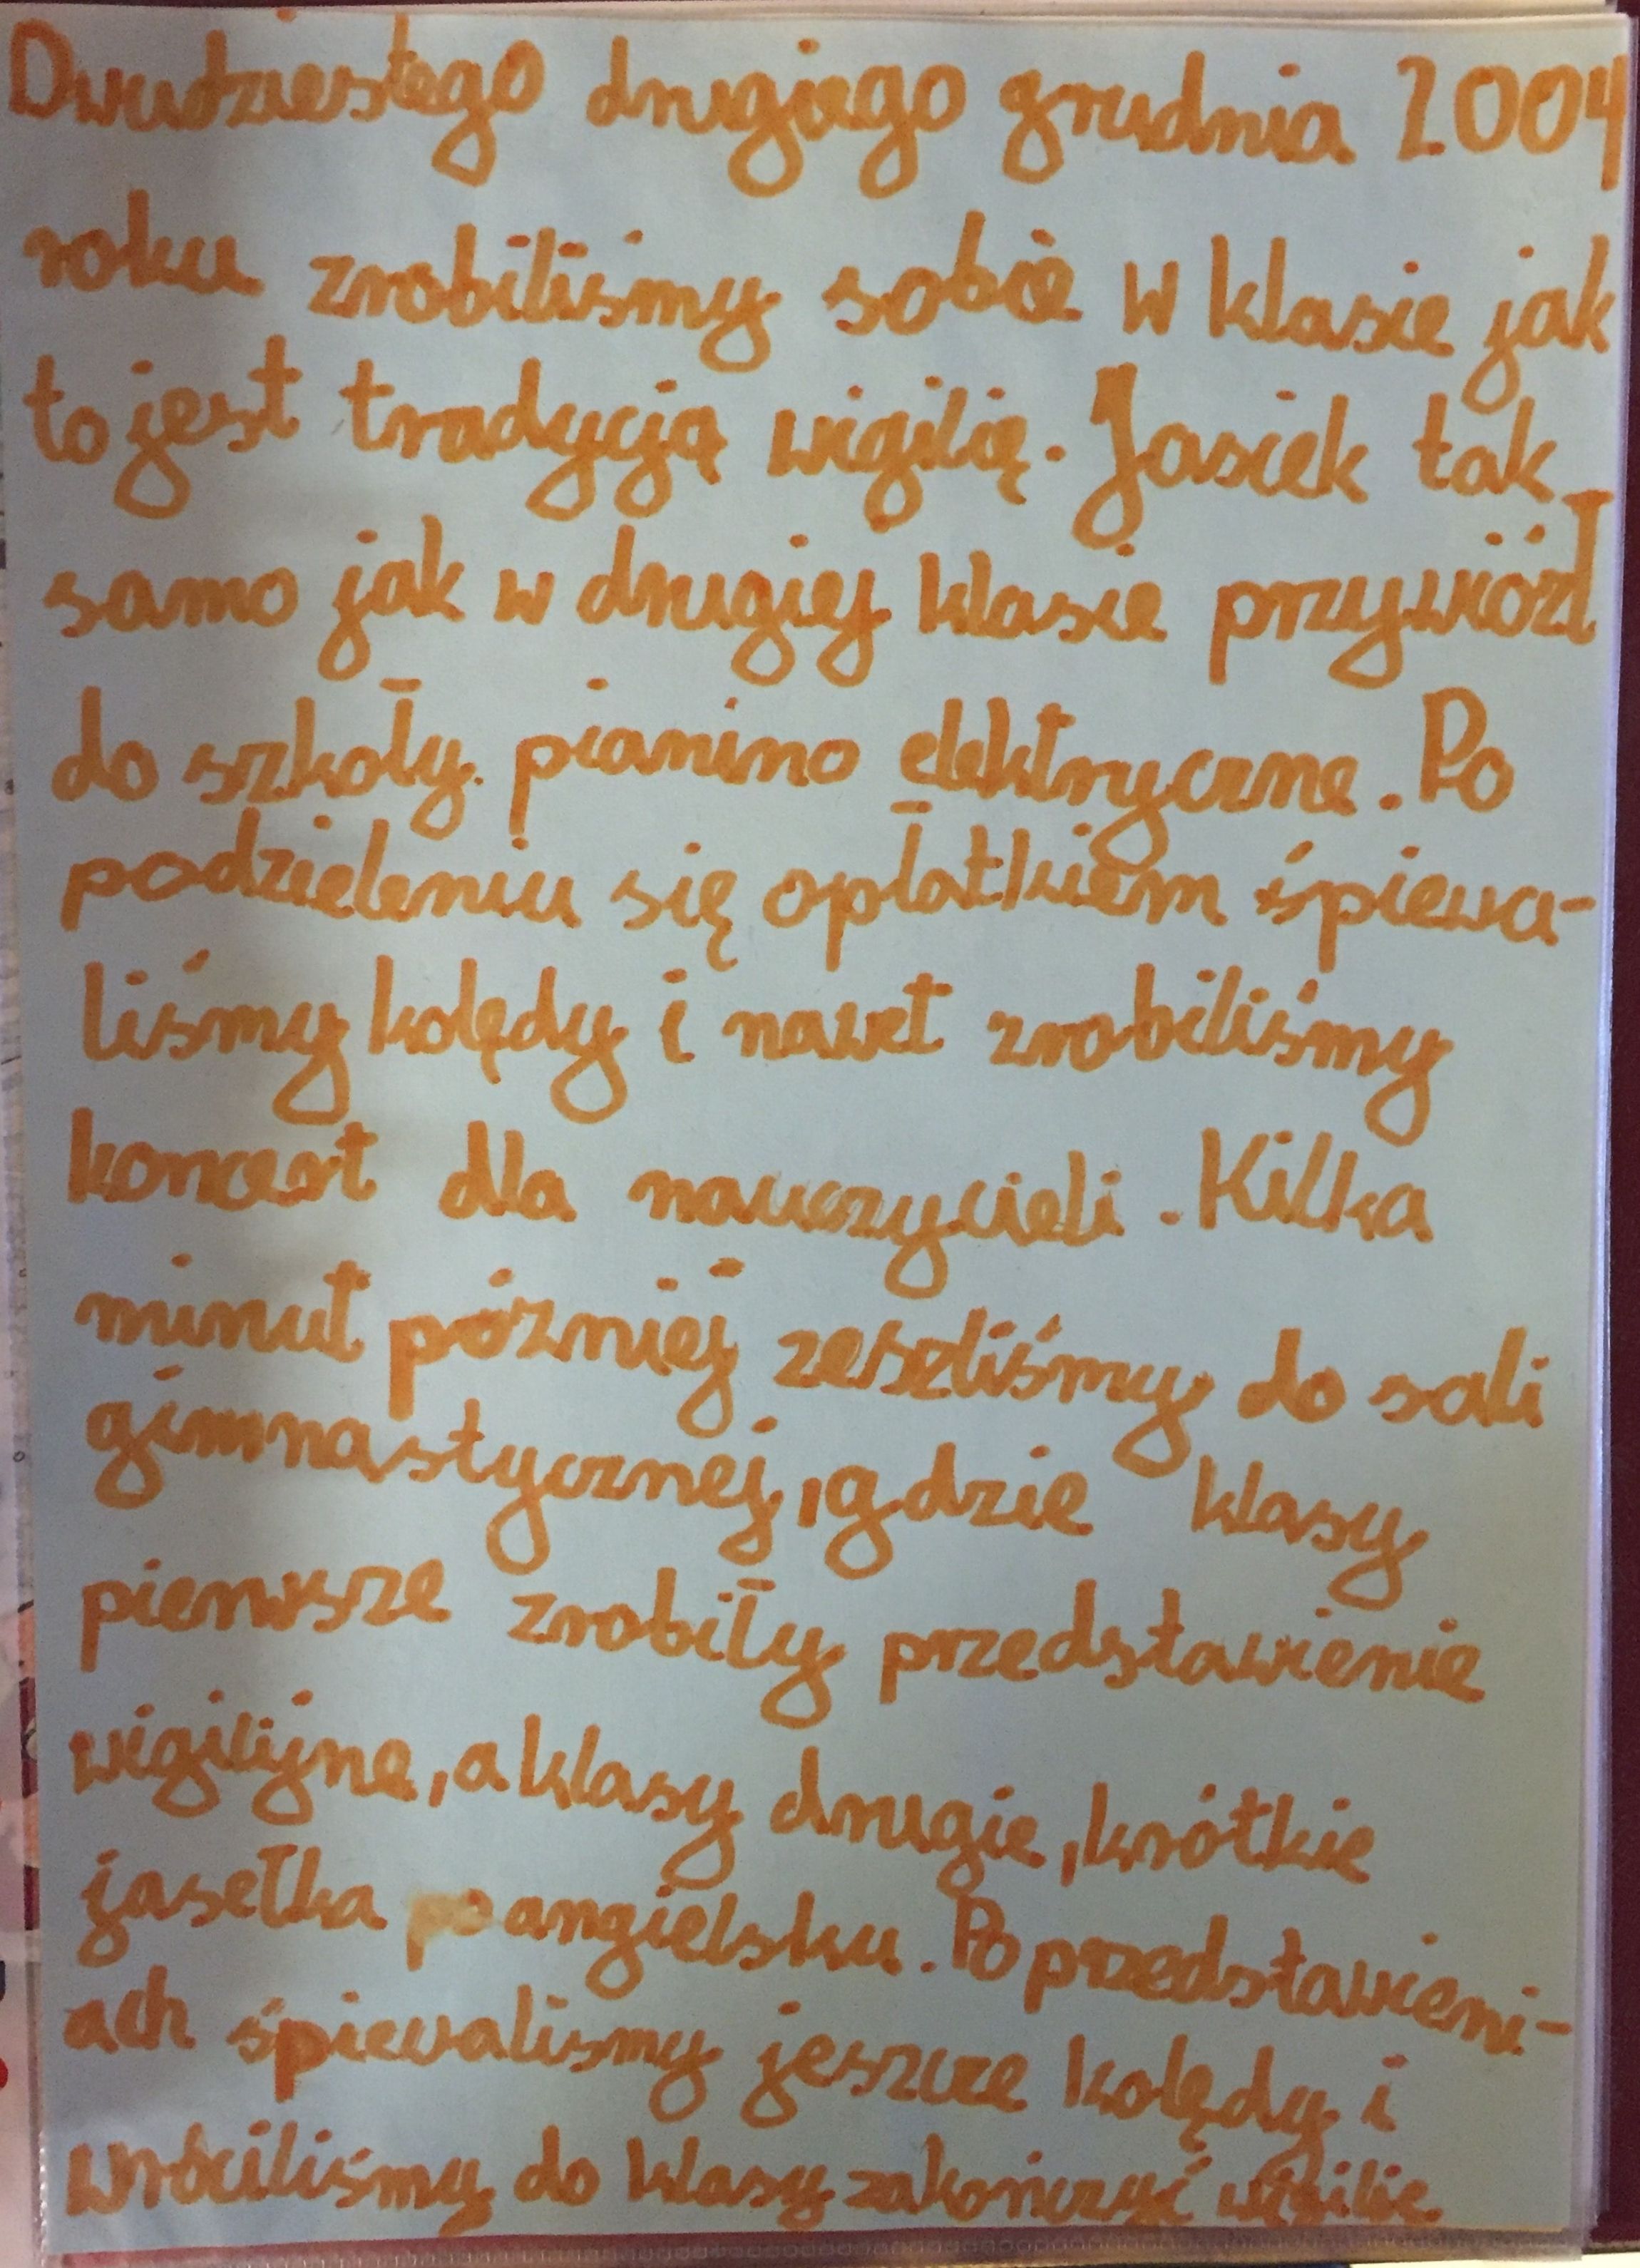 Dwudziestego drugiego grudnia 2004
roku zrobiliśmy sobie w klasie jak
to jest tradycją wigilią. Jasiek tak
samo jak w drugiej klasie przywiózł
do szkoły pianino elektryczne. Po
podzieleniu się opłatkiem śpiewa-
liśmy kolędy i nawet zrobiliśmy
koncert dla nauczycieli. Kilka
minut później zeszliśmy do sali
gimnastycznej, gdzie klasy
pierwsze zrobiły przedstawienie
wigilijne, a klasy drugie, krótkie
jasełka po angielsku. Po przedstawieni-
ach śpiewaliśmy jeszcze kolędy i
wróciliśmy do klasy zakończyć wigilię.